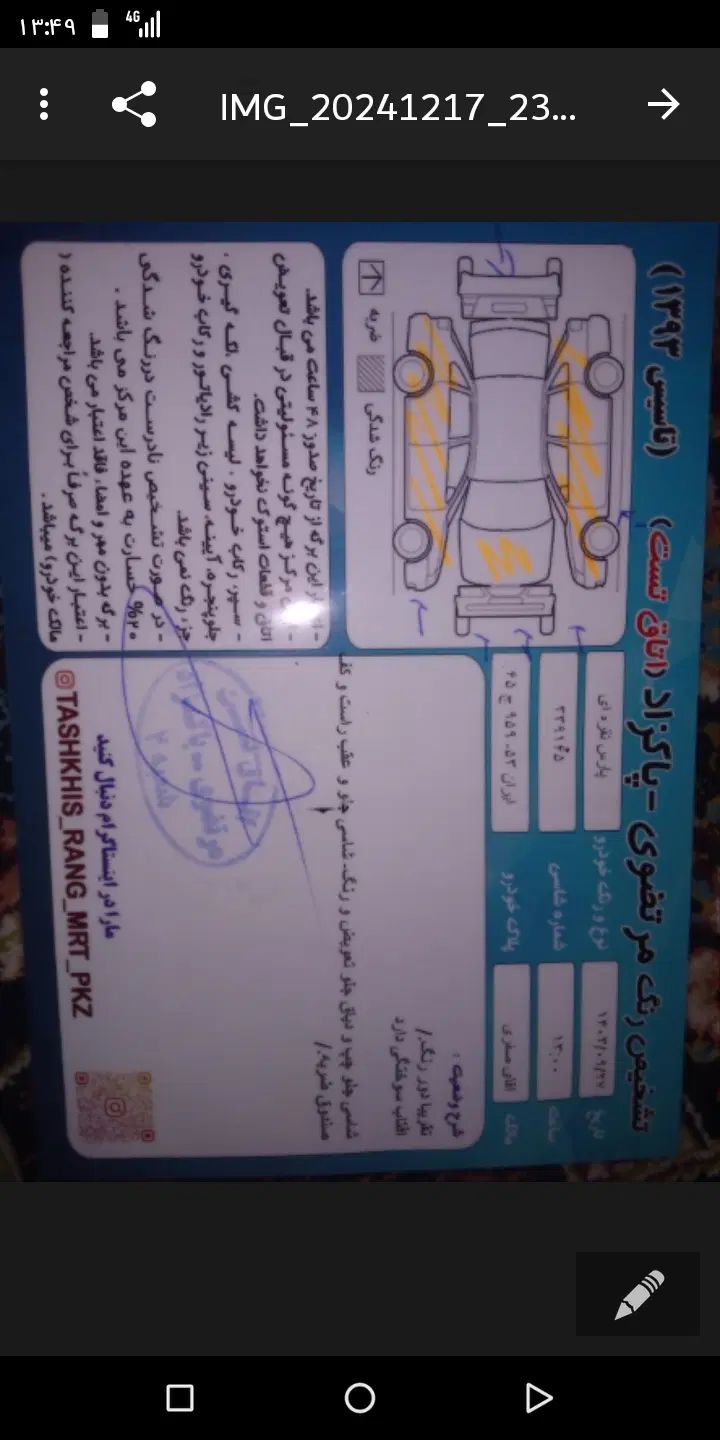 ۱۳:۴۹
4G
IMG_20241217_23...
تشخیص رنگ مرتضوی - پاکزاد (اتاق تست) (تاسیس ۱۳۹۳)
تاریخ
۱۴۰۳/۰۹/۲۷
نوع و رنگ خودرو
پارس نقره ای
ساعت
۱۳:۰۰
شماره شاسی
مالک
اقای صفری
پلاک خودرو
ایران ۵۳-۹۵۹ ج ۴۵
ضربه
رنگ شدگی
شرح وضعیت :
تقریبا دور رنگ./
افتاب سوختگی دارد
شاسی جلو چپ و دیاق جلو تعویض و رنگ- شاسی جلو و عقب راست و کف
صندوق ضربه./
از این برگه از تاریخ صدور ۴۸ ساعت می باشد.
مرکز هیچ گونه مسئولیتی در قبال تعویض
اتاق و قطعات استوک نخواهد داشت.
- سپر، رکاب خودرو ، لیسه کشی ،لکه گیری ،
جلوپنجره، آیینه، سینی زیر رادیاتور و رکاب خودرو
جزء رنگ نمی باشد.
- در صورت تشخیص نادرست دررنگ شدگی
۲۰% خسارت به عهده این مرکز می باشد .
- برگه بدون مهر و امضاء فاقد اعتبار می باشد.
- اعتبار این برگه صرفا برای شخص مراجعه کننده (
مالک خودرو) میباشد.
ما را در اینستاگرام دنبال کنید
@TASHKHIS_RANG_MRT_PKZ
مرتضوی - پاکزاد
شعبه ۲